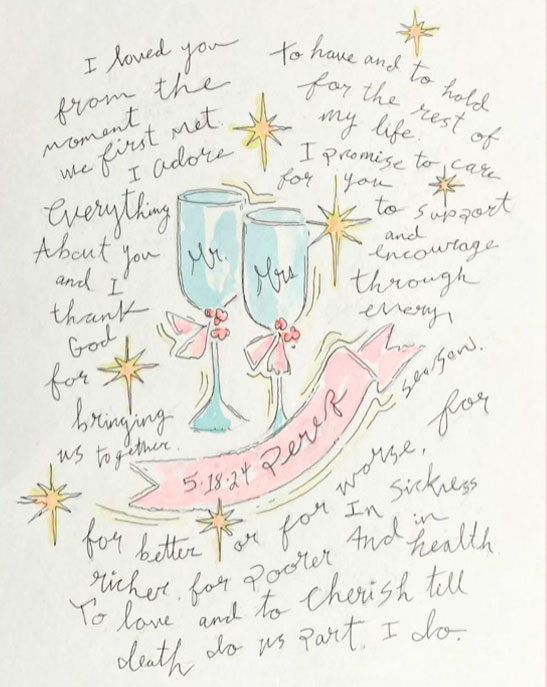 I loved you
from the
moment
we first met.
I adore
Everything
About you
and I
thank
God
for
bringing
us together.
To have and to hold
for the rest of
my life.
I promise to care
for you
to support
and
encourage
through
every
season.
Mr.
Mrs
5.18.24 Perez
for
better or for worse,
for
richer, for poorer In Sickness
And in
health.
To love and to cherish till
death do us part, I do.